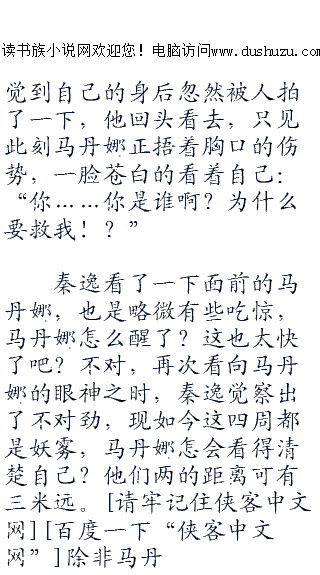 读书族小说网欢迎您！电脑访问www.dushuzu.com
觉到自己的身后忽然被人拍
了一下，他回头看去，只见
此刻马丹娜正捂着胸口的伤
势，一脸苍白的看着自己：
“你……你是谁啊？为什么
要救我！？”
秦逸看了一下面前的马
丹娜，也是略微有些吃惊，
马丹娜怎么醒了？这也太快
了吧？不对，再次看向马丹
娜的眼神之时，秦逸觉察出
了不对劲，现如今这四周都
是妖雾，马丹娜怎会看得清
楚自己？他们两的距离可有
三米远。[请牢记住侠客中文
网][百度一下“侠客中文
网”]除非马丹